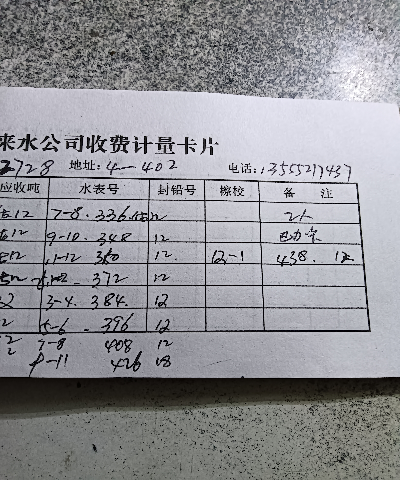 来水公司收费计量卡片
2728 地址:4-402 电话:13555217437
应收吨 水表号 封铅号 检校 备 注
12 7-8. 336 12 2人
12 9-10. 348 12
12 11-12 360 12. 12-1 438. 12
1-2 - 372 12
2 3-4. 384. 12
2 5-6 - 396 12
2 7-8 408 12
9-11 426 18